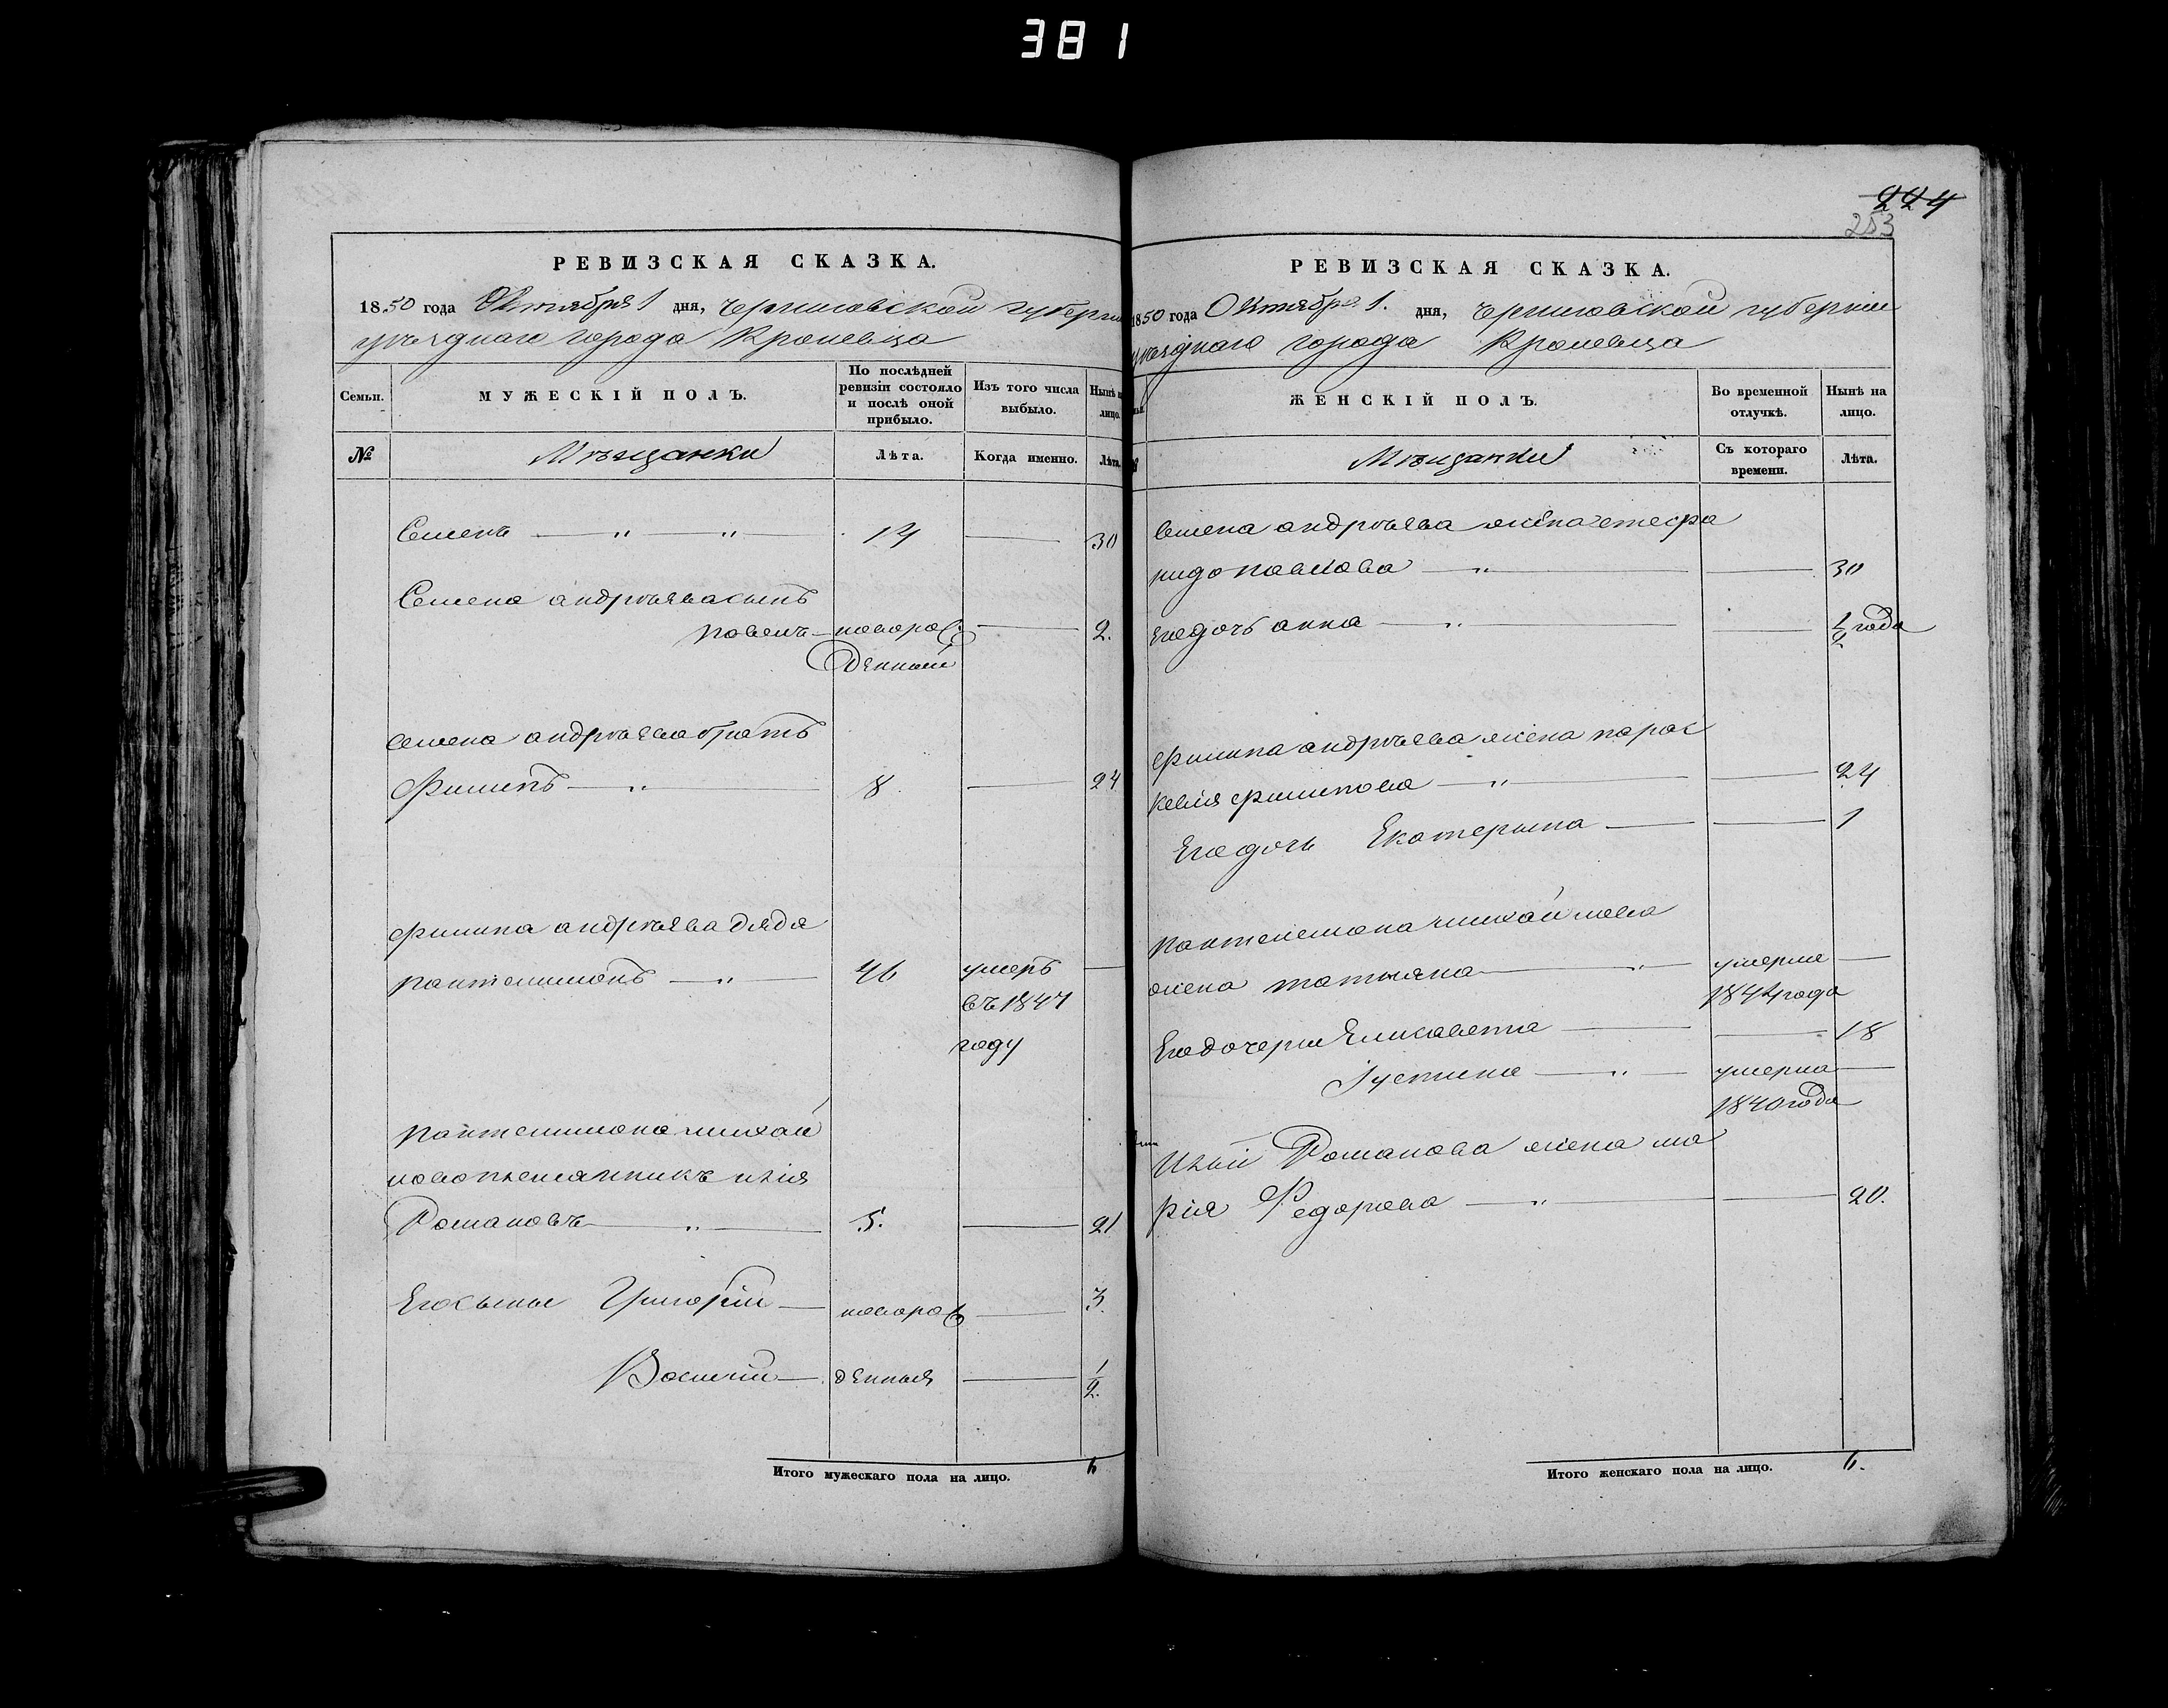 381
224
253
РЕВИЗСКАЯ СКАЗКА.
1850 года Октября 1 дня, Черниговской губерни
уѣзднаго города Кролевца
Семьи.
МУЖЕСКІЙ ПОЛЪ.
По послѣдней ревизіи состояло и послѣ оной прибыло.
Изъ того числа выбыло.
Нынѣ на лицо.
№
Мѣщанки
Лѣта.
Когда именно.
Лѣта.
Семенъ — „ — „ — 14 — 30
Семена андрѣева сынъ
павелъ — новорож — 2.
денный
Семена андрѣева братъ
Филипъ — „ — 8 — 24
филипа андрѣева дядя
пантелимонъ — „ — 46 умеръ —
въ 1847
году
пантелимона михай
лова племянникъ илія
Романовъ — „ — 5. — 21
Его сыны Григорій — новорож — 3.
Василій — денныя — 1/2.
Итого мужескаго пола на лицо. 6
РЕВИЗСКАЯ СКАЗКА.
1850 года Октября 1. дня, Черниговской губерніи
уѣзднаго города Кролевца
ЖЕНСКІЙ ПОЛЪ.
Во временной отлучкѣ.
Нынѣ на лицо.
Мѣщанки
Съ котораго времени.
Лѣта.
Семена андрѣева жена
павлова — „ — — 30
Его дочь анна — „ — — 1/2 года
филипа андрѣева жена парас
кевія филипова — „ — — 24
Его дочь Екатерина — — 1
пантелемона михайлова
жена татьяна — „ — умерла —
184 года
Его дочери Елисавета — — 18
Іустина — „ — умерла —
1840 года
Иліи Романова жена ма
рія Федорова — „ — — 20.
Итого женскаго пола на лицо. 6.